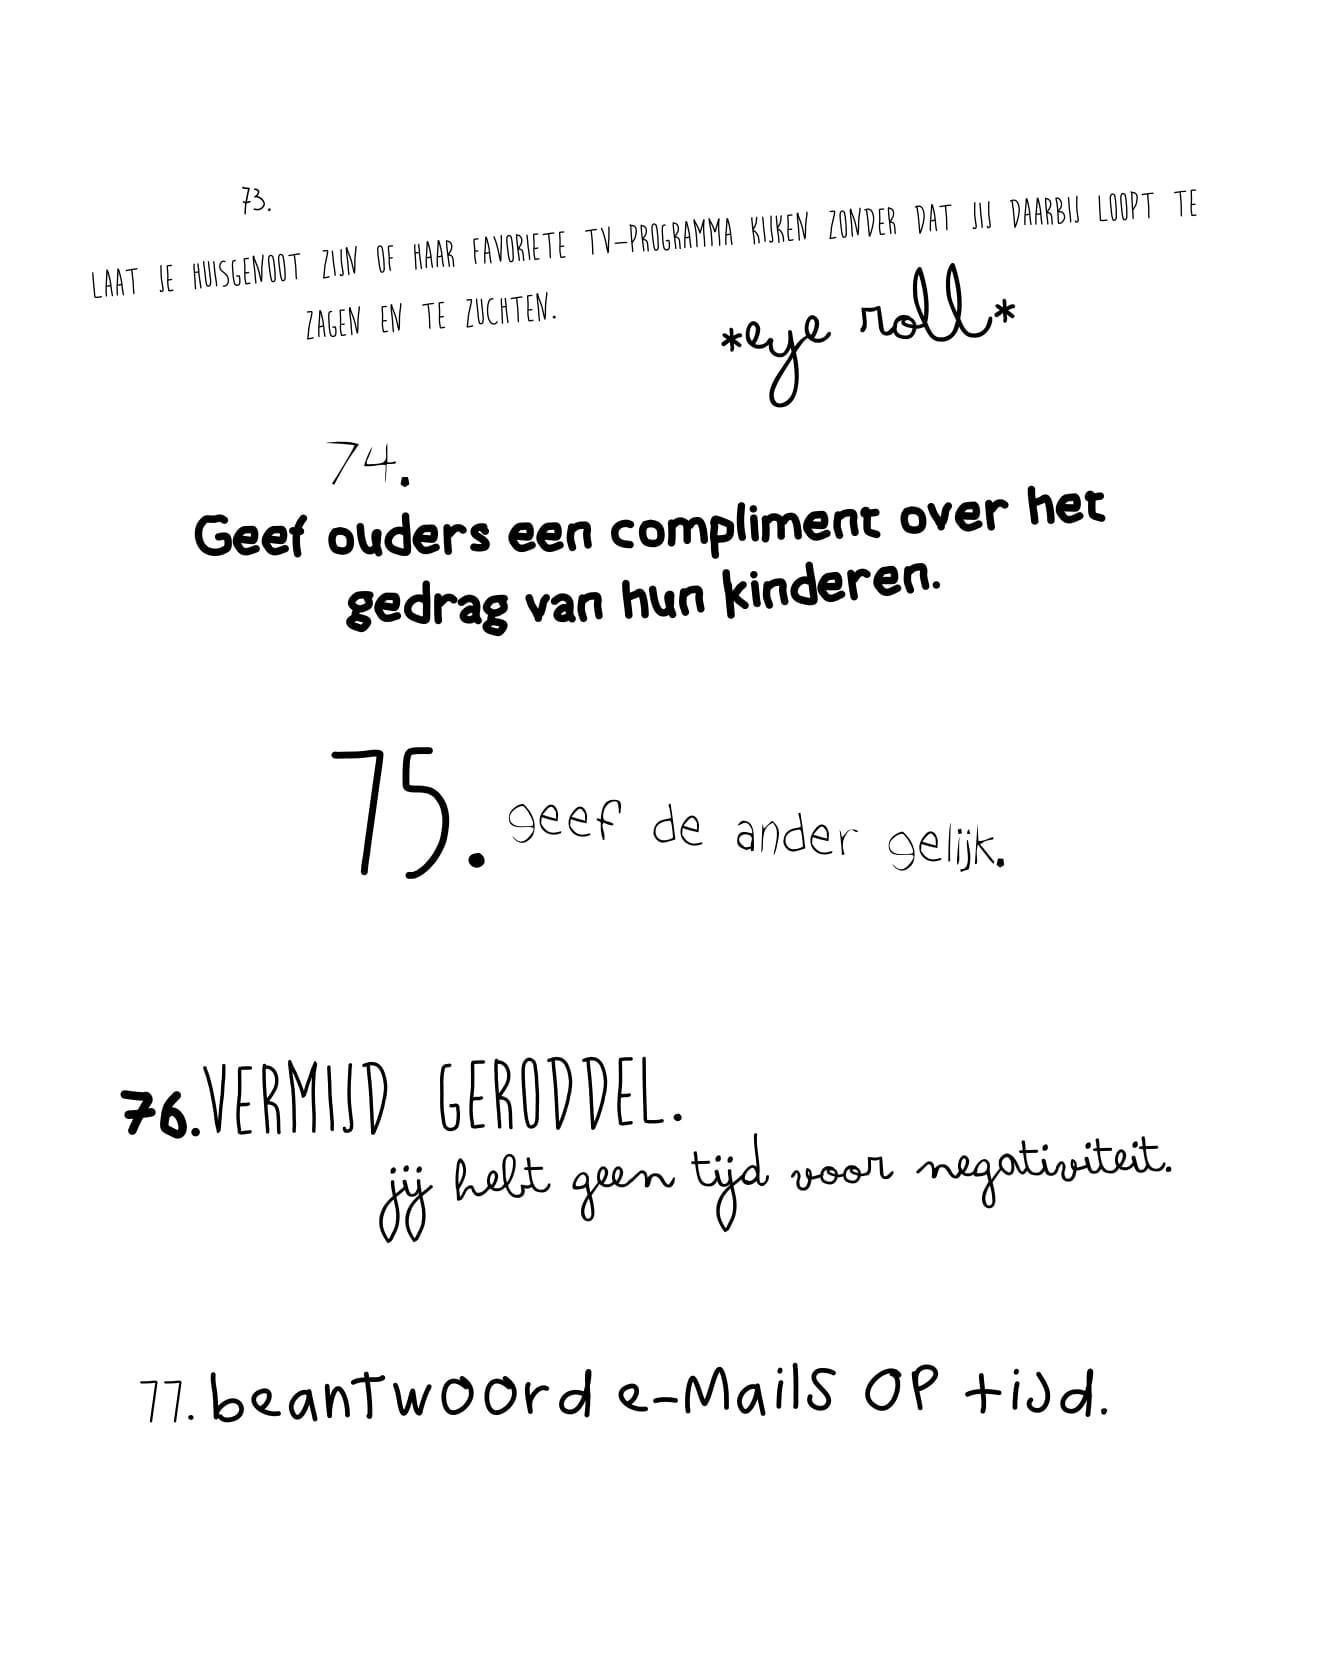 73.
LAAT JE HUISGENOOT ZIJN OF HAAR FAVORIETE TV-PROGRAMMA KIJKEN ZONDER DAT JIJ DAARBIJ LOOPT TE
ZAGEN EN TE ZUCHTEN.
*eye roll*
74.
Geef ouders een compliment over het
gedrag van hun kinderen.
75. geef de ander gelijk.
76. VERMIJD GERODDEL.
jij hebt geen tijd voor negativiteit.
77. beantwoord e-Mails OP tijd.